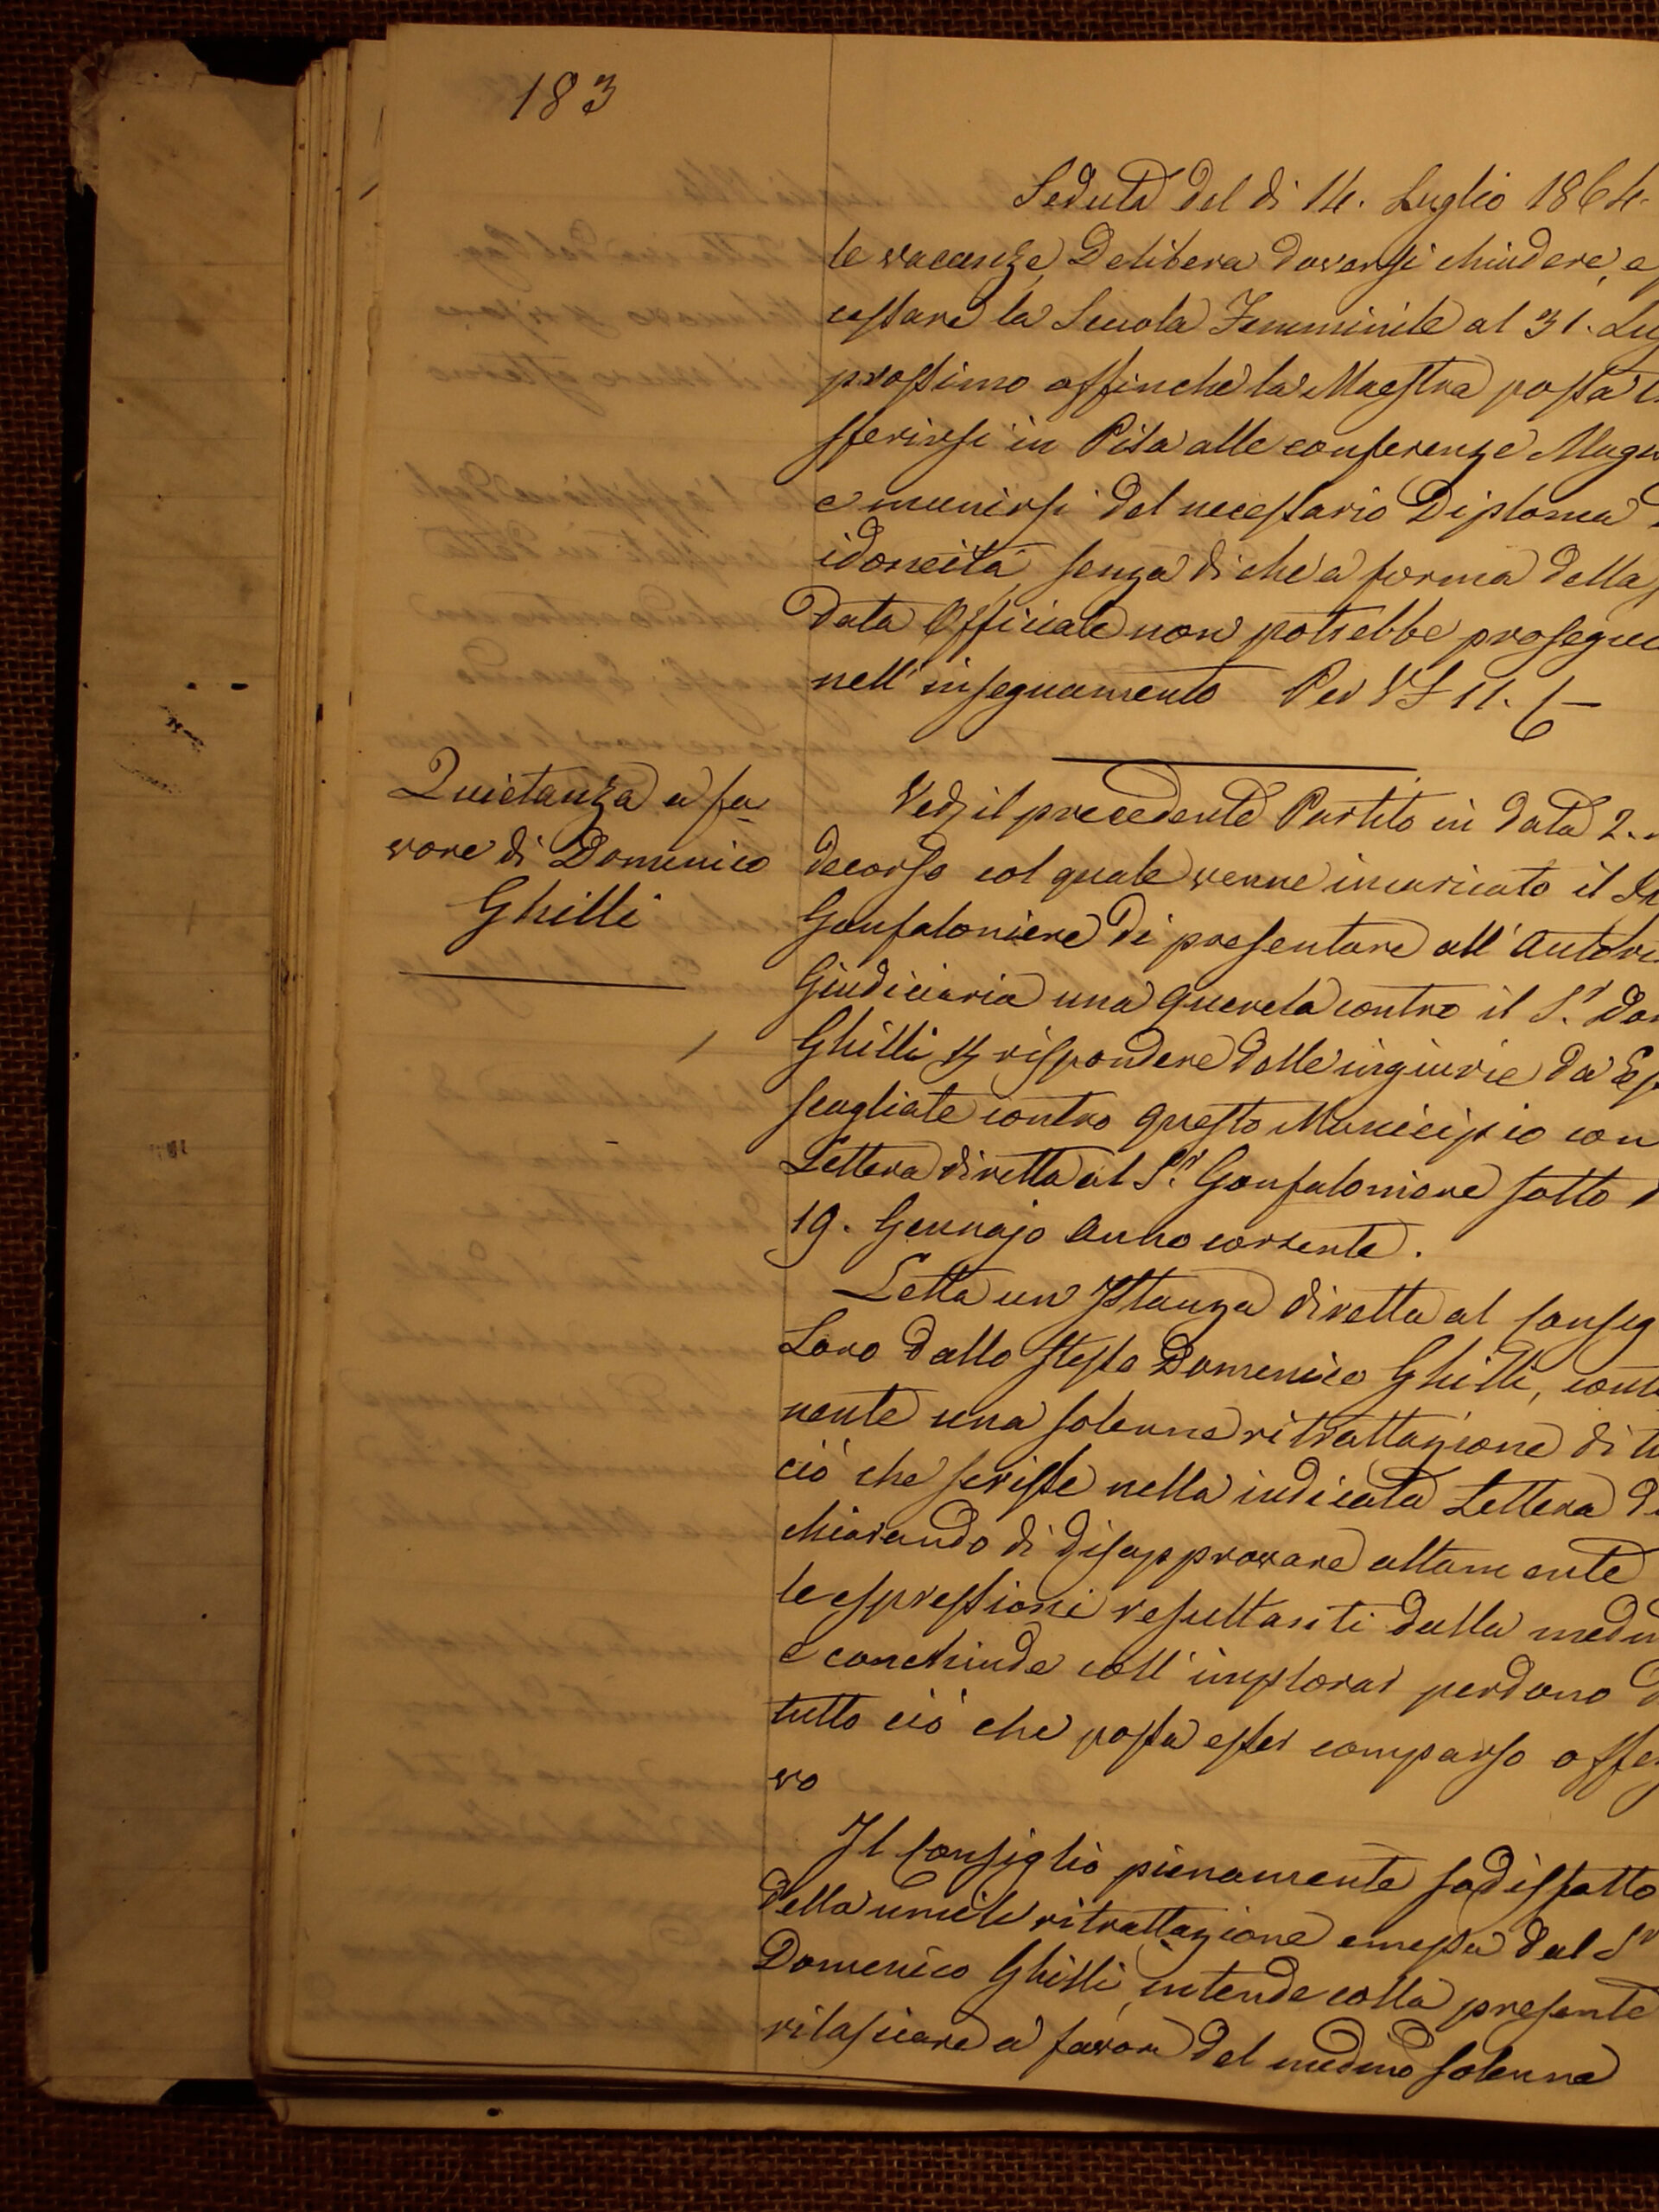 183
Seduta del dì 14. Luglio 1864.
le vacanze, Delibera doversi chiudere, e
cessare la Scuola Femminile al 31. Lug
prossimo affinchè la Maestra possa t
sferirsi in Pisa alle conferenze Mag
e munirsi del necessario Diploma
idoneità, senza di che a forma della
data Officiale non potrebbe prosegui
nell' insegnamento Per VF 11. 6 —
Quietanza a fa
vore di Domenico
Ghilli
Ved. il precedente Partito in data 2.
decorso col quale venne incaricato il
Gonfaloniere di presentare all' Autori
Giudiciaria una querela contro il S.r Dom
Ghilli rispondere delle ingiurie da Es
scagliate contro questo Municipio con
Lettera diretta al S.r Gonfaloniere sotto
19. Gennajo Anno corrente.
Letta un Istanza diretta al Consig
Loro dallo stesso Domenico Ghilli, conte
nente una solenne ritrattazione di tu
ciò che scrisse nella indicata Lettera di
chiarando di disapprovare altamente
le espressioni resultanti dalla med
e conchiude coll' implorar perdono d
tutto ciò che possa esser comparso offen
vo
Il Consiglio pienamente sodisfatto
della umile ritrattazione emessa dal S.r
Domenico Ghilli, intende colla presente
rilasciare a favore del medmo solenne